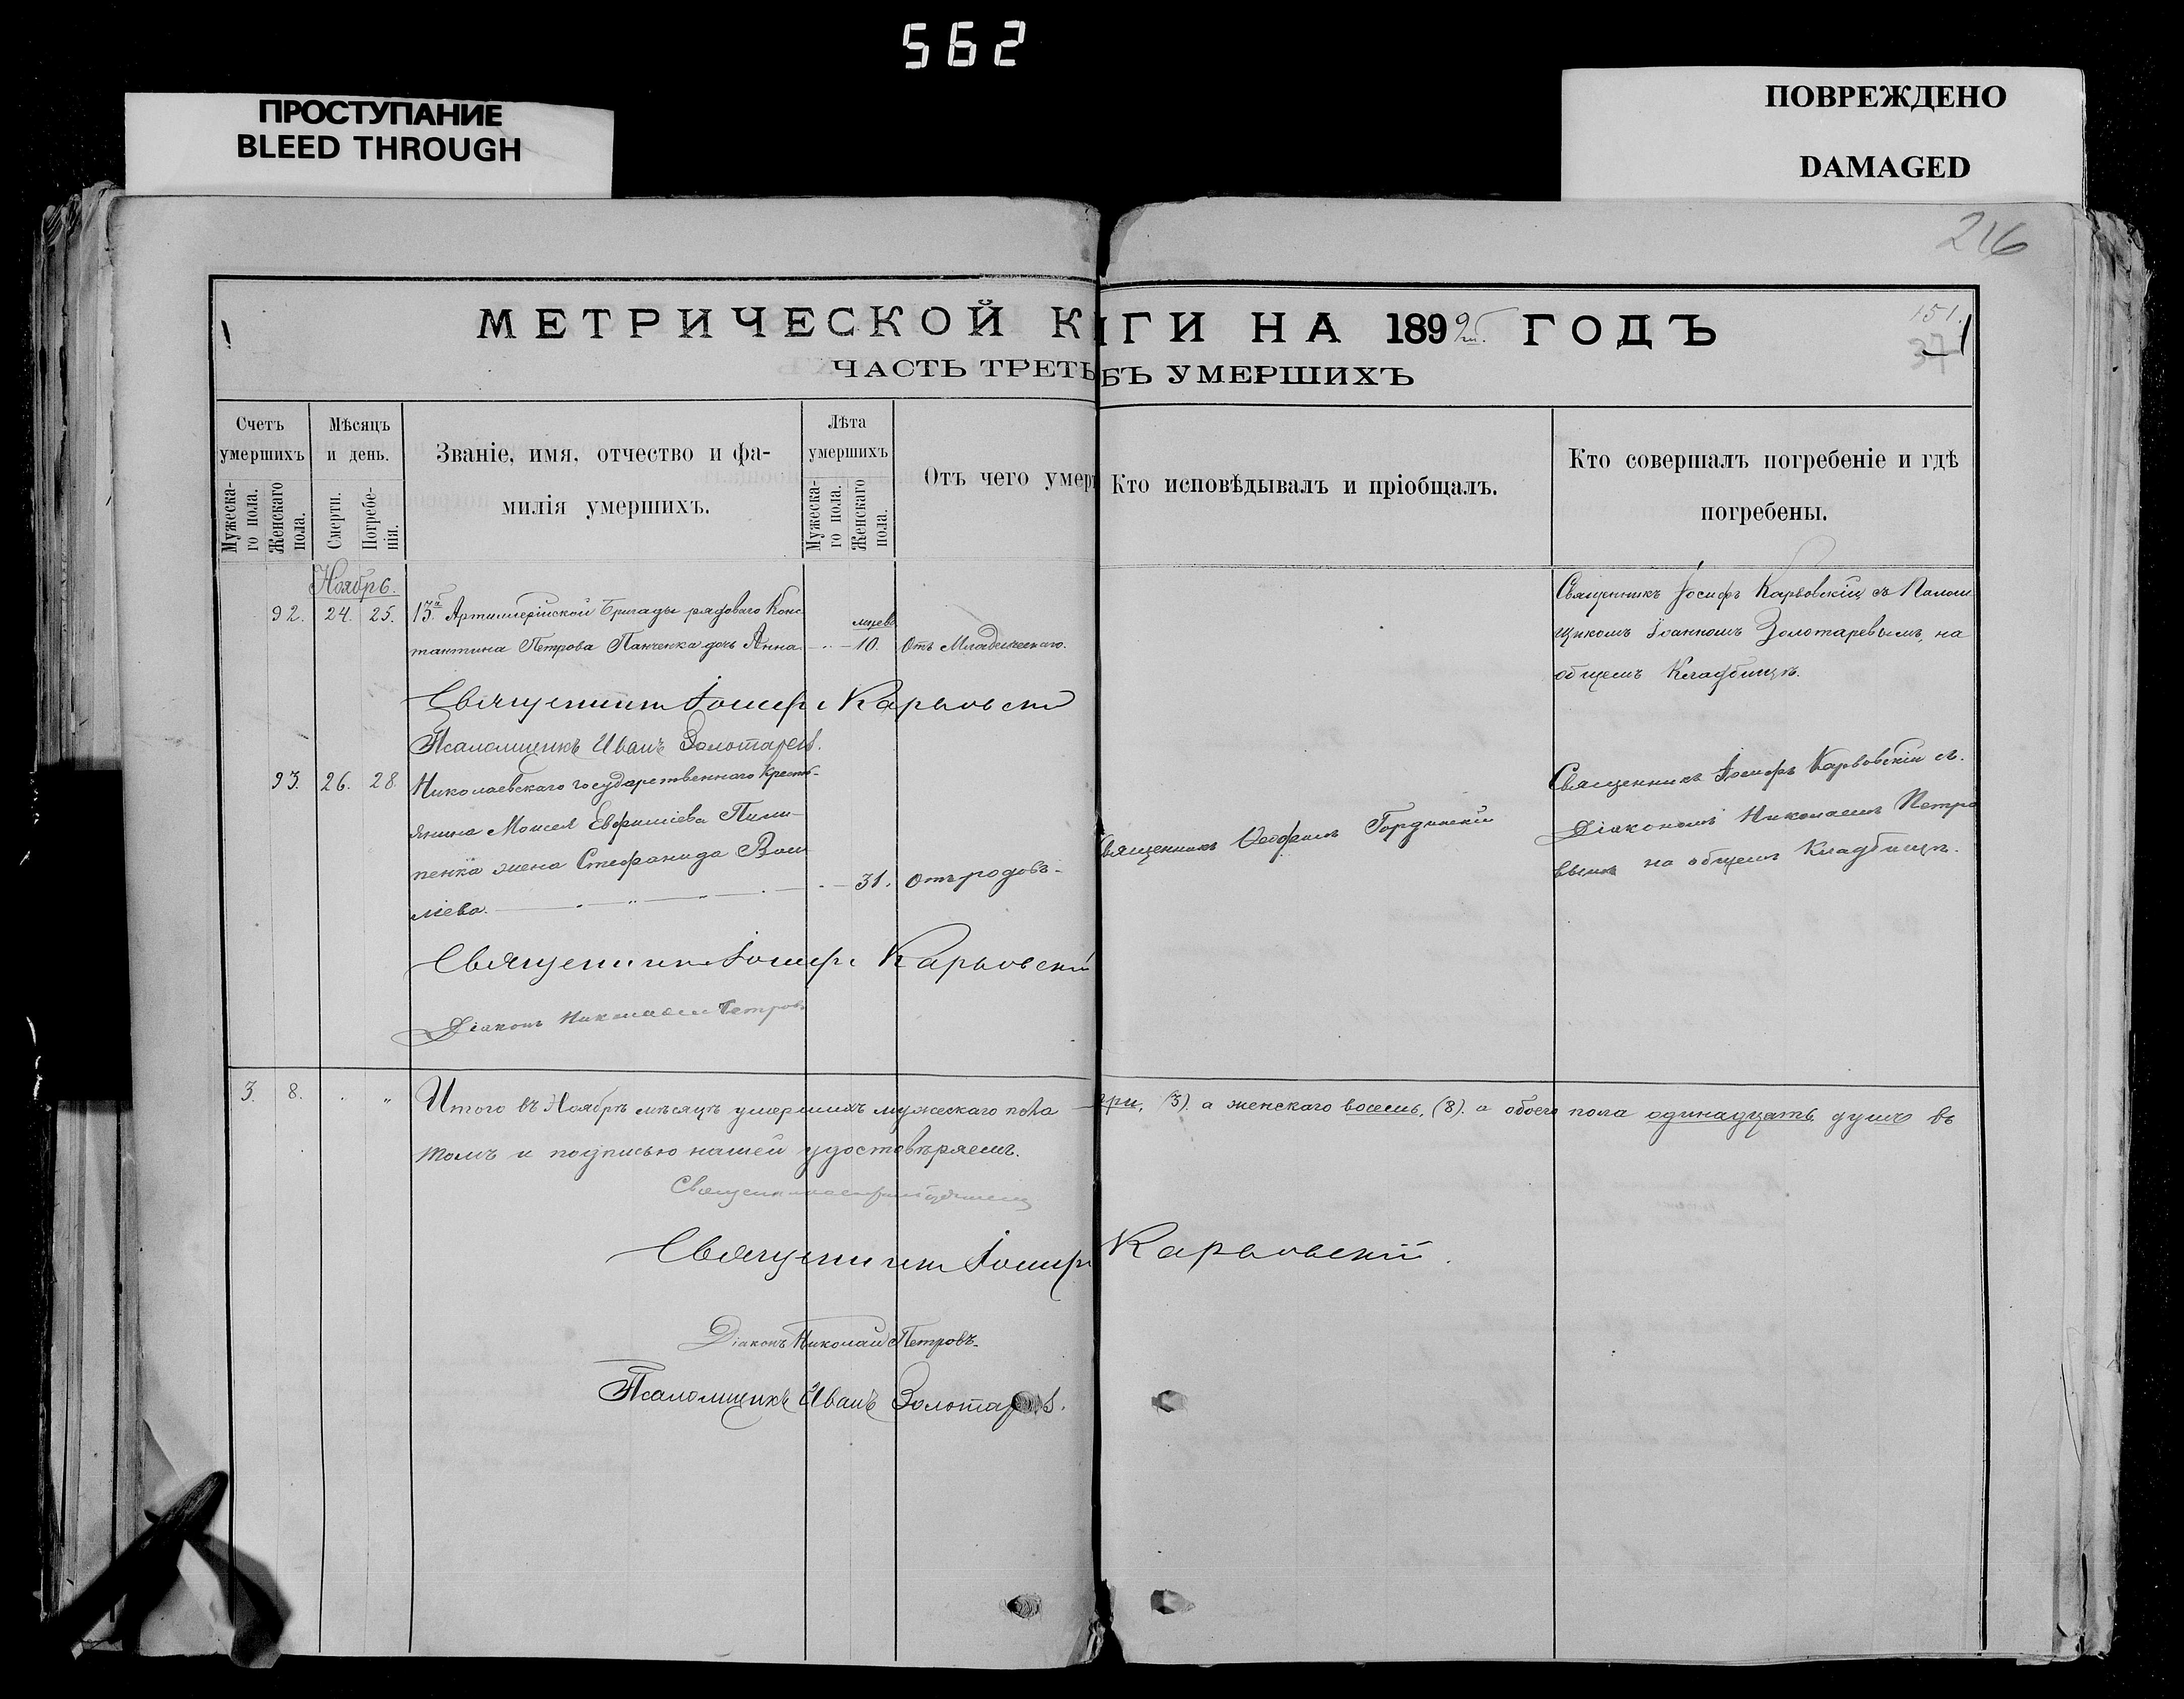 562
ПРОСТУПАНИЕ
BLEED THROUGH
ПОВРЕЖДЕНО
DAMAGED
216
МЕТРИЧЕСКОЙ К
ИГИ НА 1892 ГОДЪ
151.
37
ЧАСТЬ ТРЕТЬ
БЪ УМЕРШИХЪ
Счетъ умершихъ
Мужеска-го пола.
Женскаго пола.
Мѣсяцъ и день.
Смерти.
Погребе-нія.
Званіе, имя, отчество и фа-
милія умершихъ.
Лѣта умершихъ
Мужеска-го пола.
Женскаго пола.
Отъ чего умер
Кто исповѣдывалъ и пріобщалъ.
Кто совершалъ погребеніе и гдѣ
погребены.
Ноябрь.
92. 24. 25. 13й Артиллерійской Бригады рядоваго Конс
тантина Петрова Панченка дочь Анна 10. Отъ Младенческаго.
Священникъ Іосифъ Карвовскій съ Псалом
щикомъ Іоанномъ Золотаревымъ, на
общемъ Кладбищѣ.
Священникъ Іосифъ Карвовскій
Псаломщикъ Иванъ Золотаревъ.
93. 26. 28. Николаевскаго государственнаго крестья-
янина Моисея Пили-
пенка жена Стефанида Васи
лiева. 31. Отъ родовъ.
Священникъ Гординскій
Священникъ Іосифъ Карвовскій съ
Діакономъ Николаемъ Петро
вымъ на общемъ Кладбищѣ.
Священникъ Іосифъ Карвовскій
Діаконъ Николай Петровъ
3. 8. Итого въ Ноябрѣ мѣсяцѣ умершихъ мужескаго пола три, (3). а женскаго восемь, (8). а обоего пола одинадцать душъ въ
томъ и подписью нашей удостовѣряемъ.
Священникъ Іосифъ Карвовскій.
Діаконъ Николай Петровъ.
Псаломщикъ Иванъ Золотаревъ.